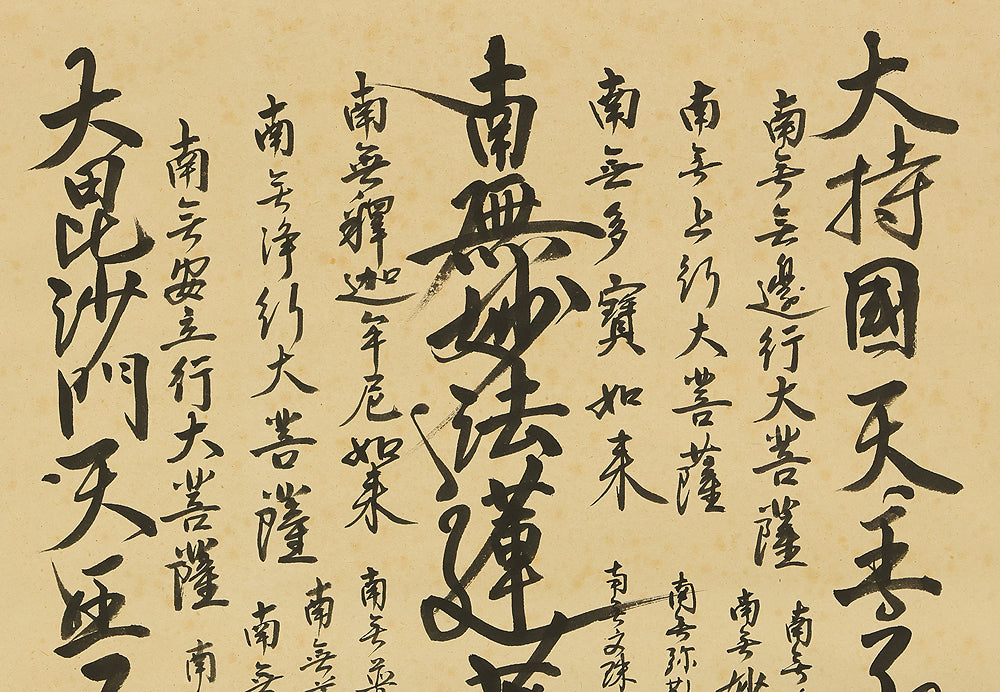 大持國天王
南無無邊行大菩薩
南無上行大菩薩
南無多寶如来
南無妙法蓮華
南無釋迦牟尼如来
南無浄行大菩薩
南無安立行大菩薩
大毘沙門天王
南無
南無妙
南無弥勒
南無文殊
南無普
南無
南無
南